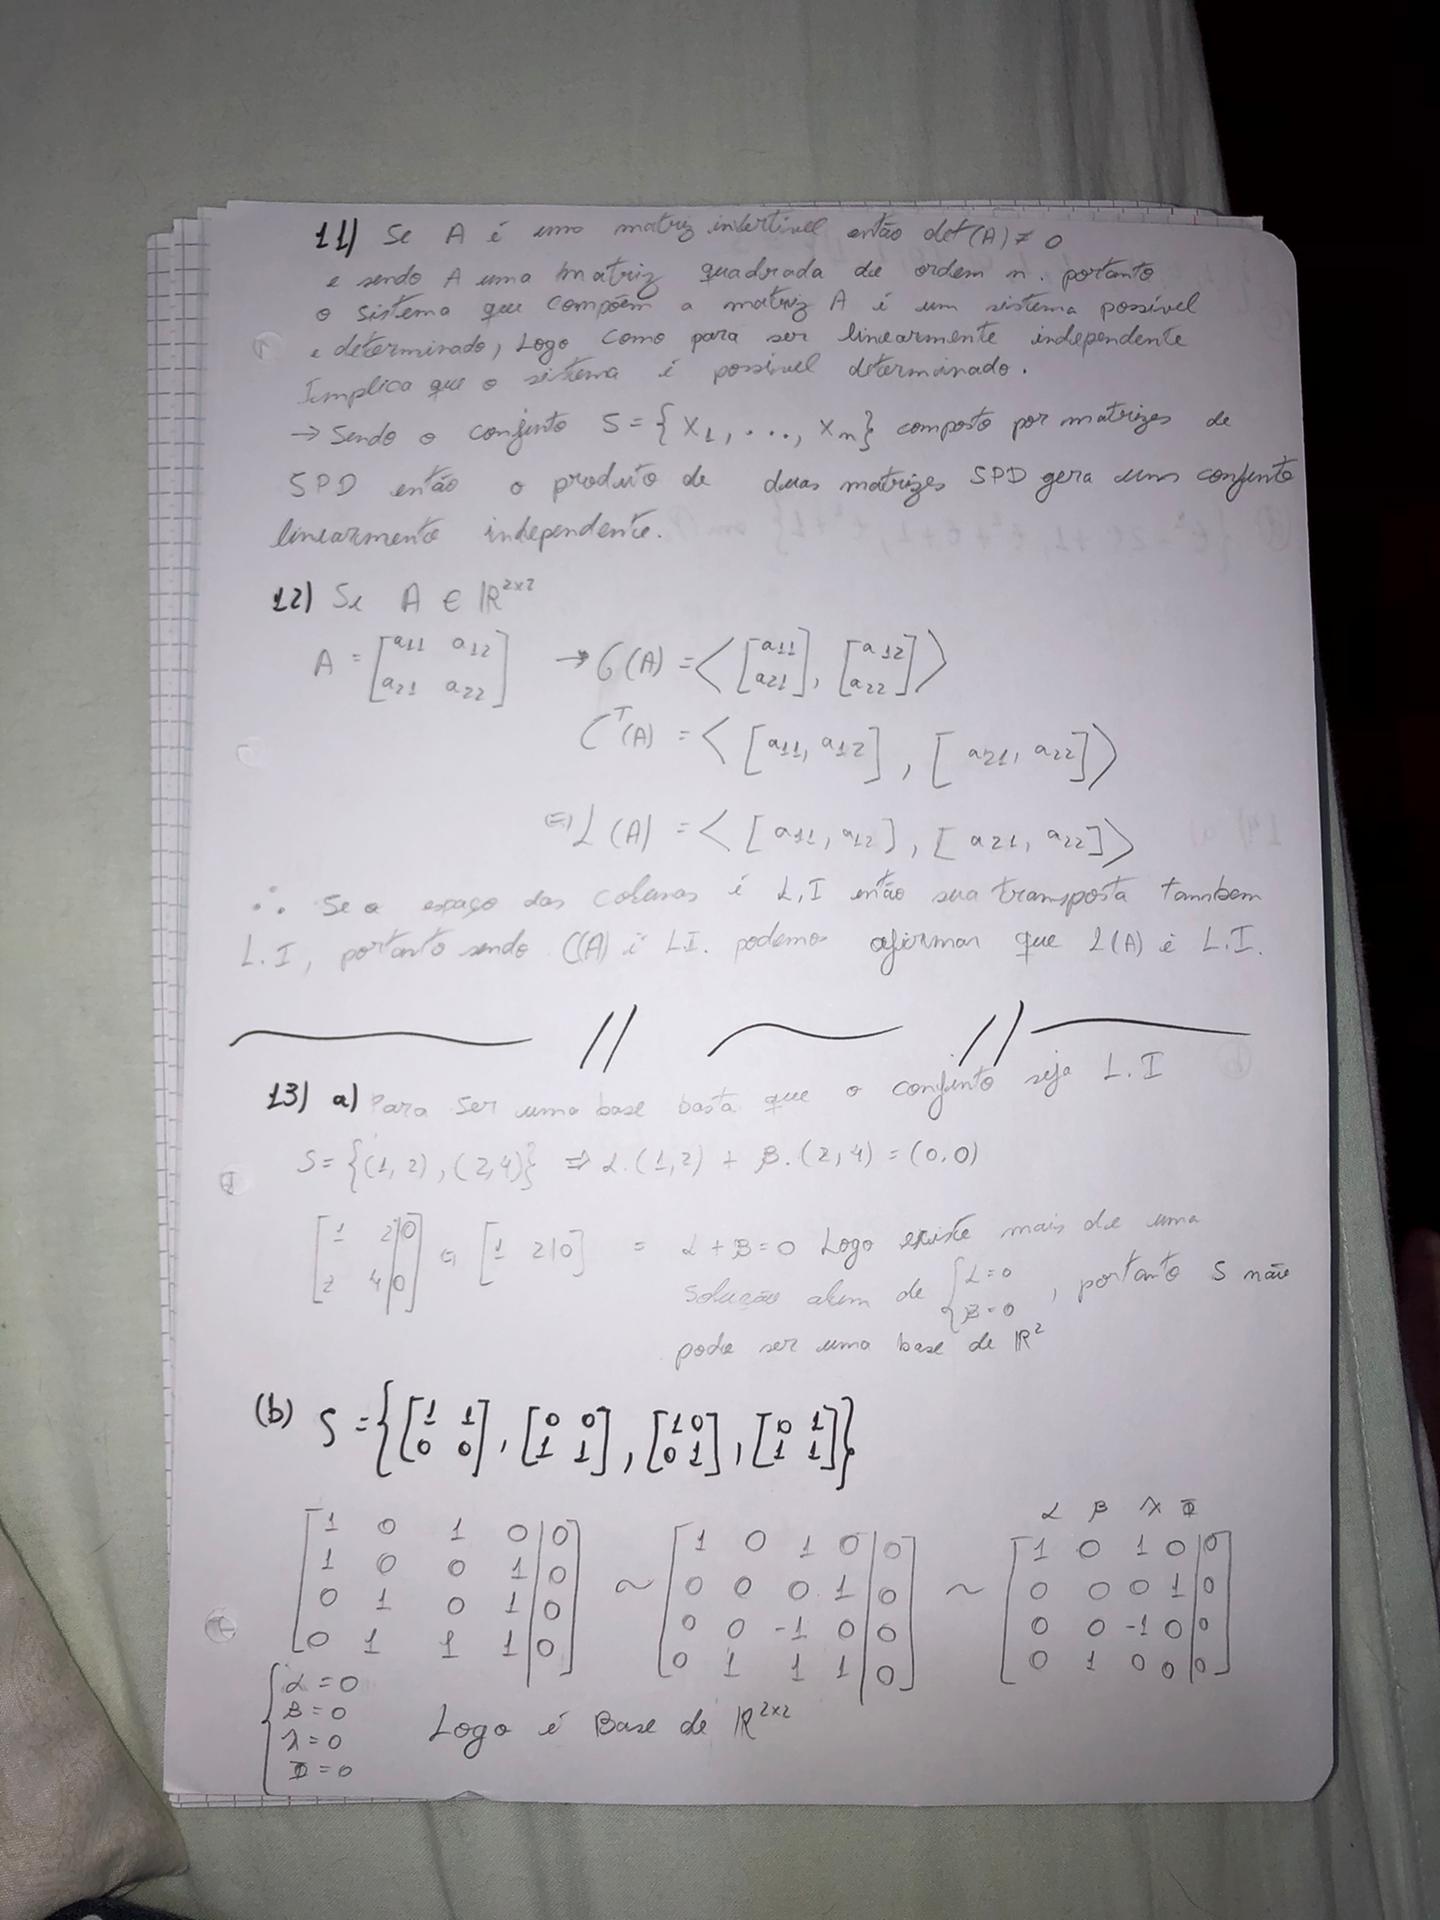 11) Se A é uma matriz invertível então det(A) ≠ 0
e sendo A uma matriz quadrada de ordem n. portanto
o sistema que compõem a matriz A é um sistema possível
e determinado, Logo como para ser linearmente independente
Implica que o sistema é possível determinado.
→ Sendo o conjunto S = {X1, ..., Xn} composto por matrizes de
SPD então o produto de duas matrizes SPD gera um conjunto
linearmente independente.
12) Se A ∈ ℝ^{2x2}
A = [a11 a12; a21 a22] → C(A) = < [a11; a21], [a12; a22] >
C^T(A) = < [a11, a12], [a21, a22] >
L(A) = < [a11, a12], [a21, a22] >
∴ Se o espaço das colunas é L.I então sua transposta tambem
L.I, portanto sendo C(A) é L.I. podemos afirmar que L(A) é L.I.
13) a) Para ser uma base basta que o conjunto seja L.I
S = {(1,2), (2,4)} ⇒ α.(1,2) + β.(2,4) = (0,0)
[1 2|0; 2 4|0] [1 2|0] = α + β = 0 Logo existe mais de uma
solução alem de {α=0; β=0, portanto S não
pode ser uma base de ℝ²
(b) S = {[1 1; 0 0], [0 0; 1 1], [1 0; 0 1], [0 1; 1 1]}
α β λ Φ
[1 0 1 0|0; 1 0 0 1|0; 0 1 0 1|0; 0 1 1 1|0] ~ [1 0 1 0|0; 0 0 0 1|0; 0 0 -1 0|0; 0 1 1 1|0] ~ [1 0 1 0|0; 0 0 0 1|0; 0 0 -1 0|0; 0 1 0 0|0]
{α = 0
β = 0
λ = 0
Φ = 0
Logo é Base de ℝ^{2x2}